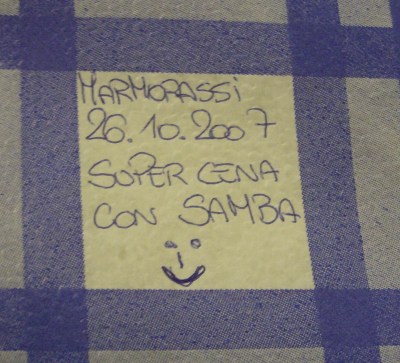 MARMORASSI
26.10.2007
SUPER CENA
CON SAMBA